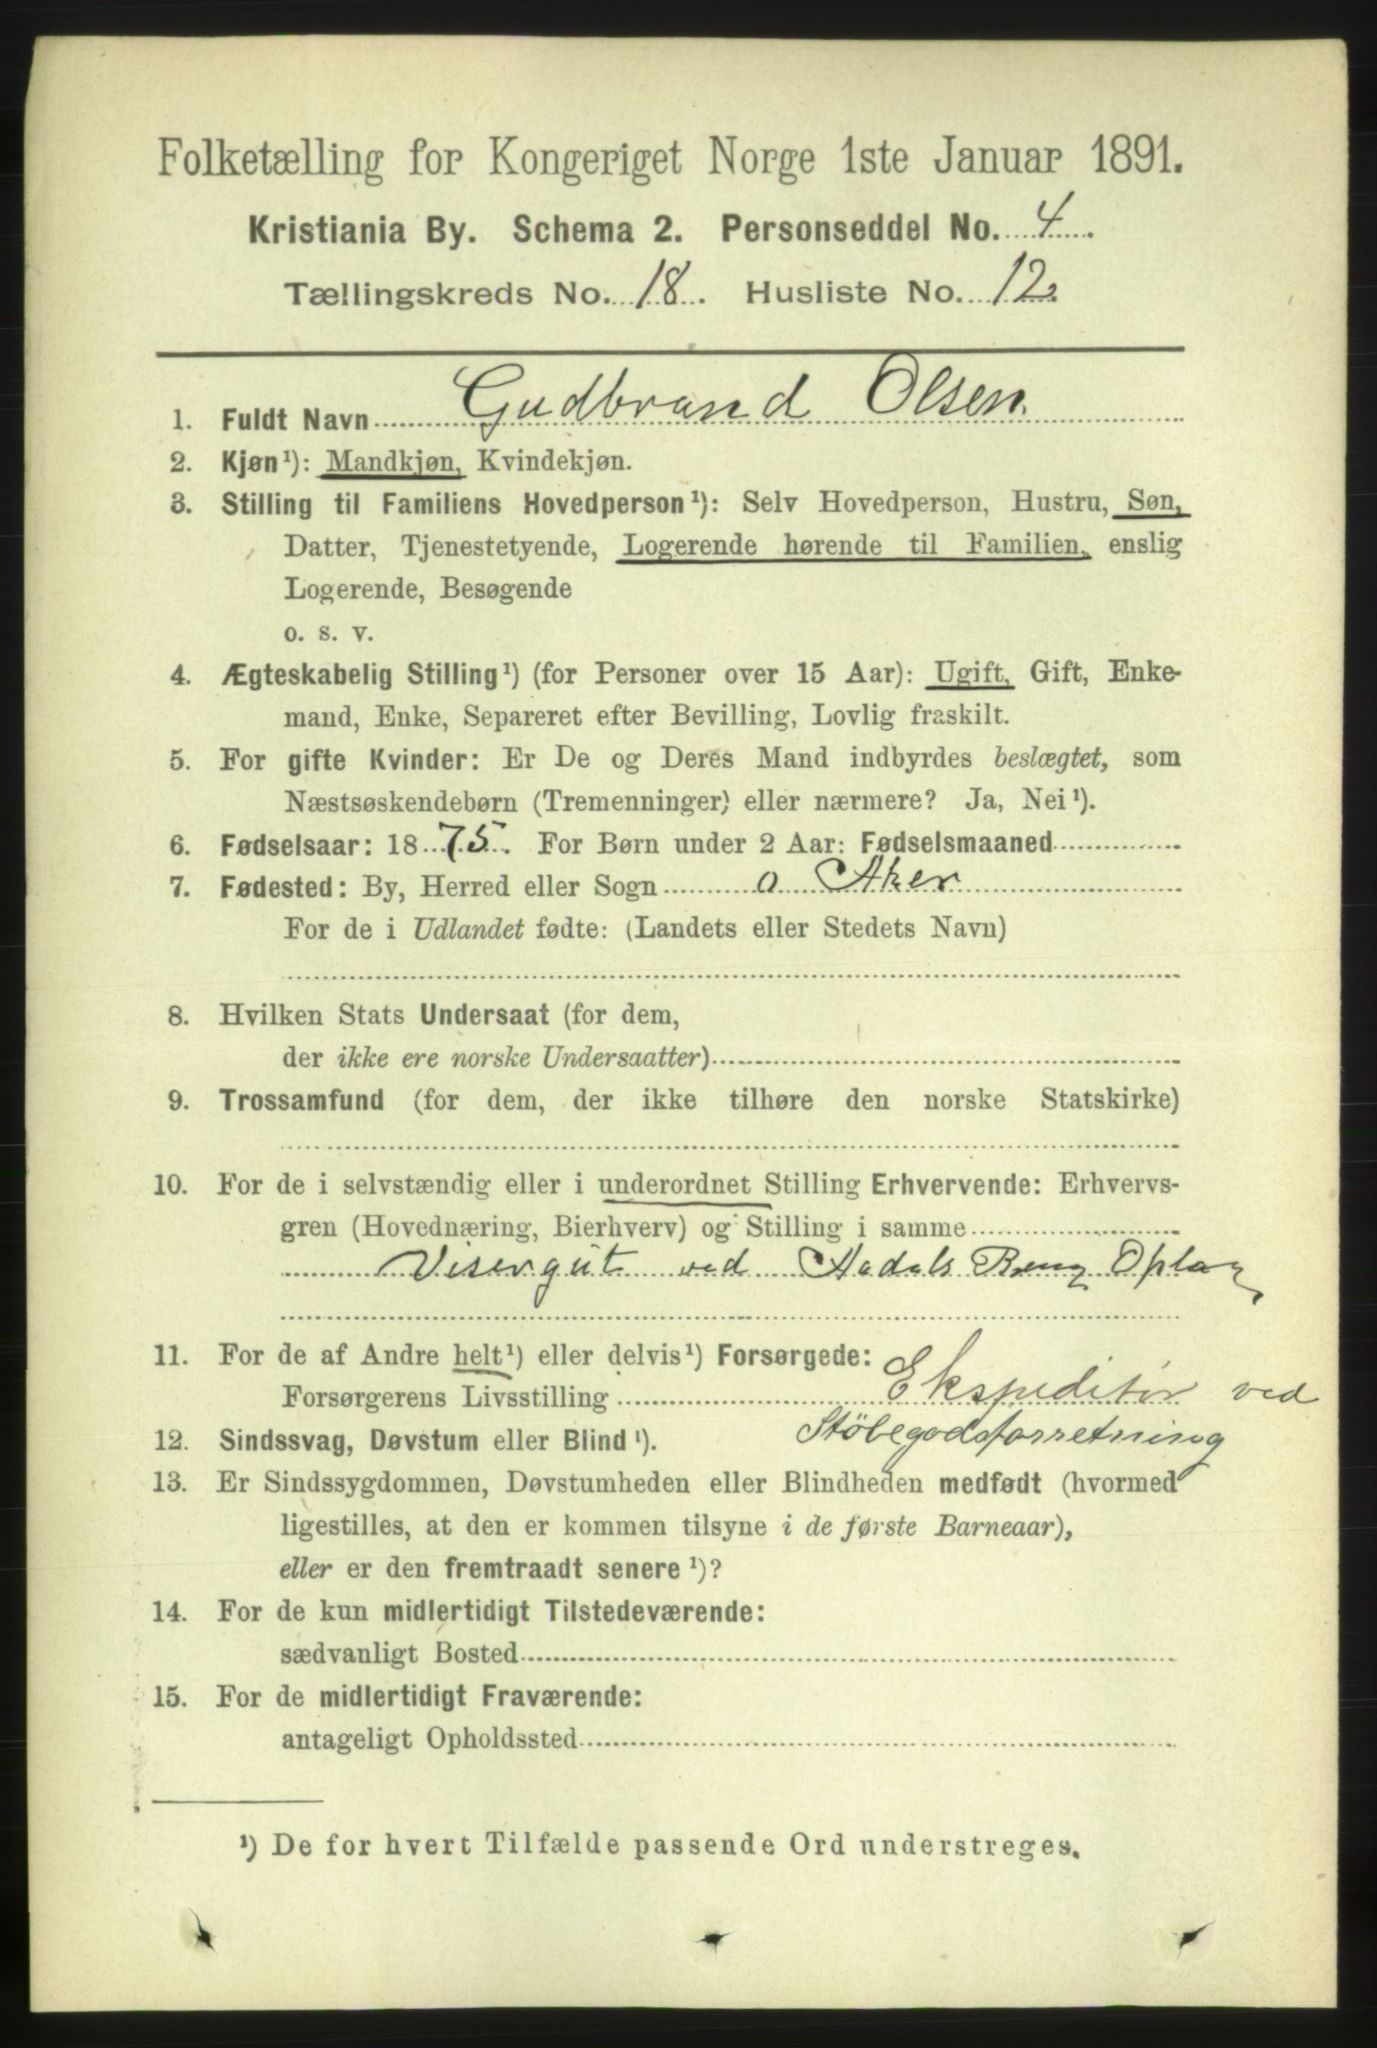 Folketælling for Kongeriget Norge 1ste Januar 1891.
Kristiania By. Schema 2. Personseddel No. 4.
Tællingskreds No. 18. Husliste No. 12.
1. Fuldt Navn Gudbrand Olsen
2. Kjøn¹): Mandkjøn, Kvindekjøn.
3. Stilling til Familiens Hovedperson¹): Selv Hovedperson, Hustru, Søn,
Datter, Tjenestetyende, Logerende hørende til Familien, enslig
Logerende, Besøgende
o. s. v.
4. Ægteskabelig Stilling¹) (for Personer over 15 Aar): Ugift, Gift, Enke-
mand, Enke, Separeret efter Bevilling, Lovlig fraskilt.
5. For gifte Kvinder: Er De og Deres Mand indbyrdes beslægtet, som
Næstsøskendebørn (Tremenninger) eller nærmere? Ja, Nei¹).
6. Fødselsaar: 1875. For Børn under 2 Aar: Fødselsmaaned
7. Fødested: By, Herred eller Sogn o Aker
For de i Udlandet fødte: (Landets eller Stedets Navn)
8. Hvilken Stats Undersaat (for dem,
der ikke ere norske Undersaatter)
9. Trossamfund (for dem, der ikke tilhøre den norske Statskirke)
10. For de i selvstændig eller i underordnet Stilling Erhvervende: Erhvervs-
gren (Hovednæring, Bierhverv) og Stilling i samme
Visergut ved Aadals Oplag
11. For de af Andre helt¹) eller delvis¹) Forsørgede:
Forsørgerens Livsstilling Ekspeditør ved
Stöbegodsforretning
12. Sindssvag, Døvstum eller Blind¹).
13. Er Sindssygdommen, Døvstumheden eller Blindheden medfødt (hvormed
ligestilles, at den er kommen tilsyne i de første Barneaar),
eller er den fremtraadt senere¹)?
14. For de kun midlertidigt Tilstedeværende:
sædvanligt Bosted
15. For de midlertidigt Fraværende:
antageligt Opholdssted
¹) De for hvert Tilfælde passende Ord understreges.